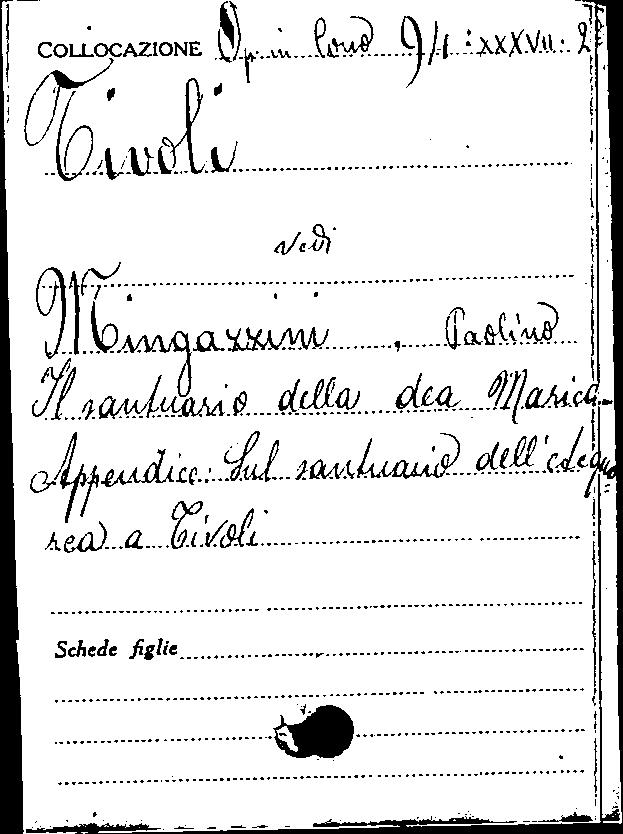 COLLOCAZIONE Op. in Cons 9/1:XXXVII.2
Tivoli
vedi
Mingazzini, Paolino
Il santuario della dea Marica.
Appendice: Sul santuario dell'
rea a Tivoli
Schede figlie